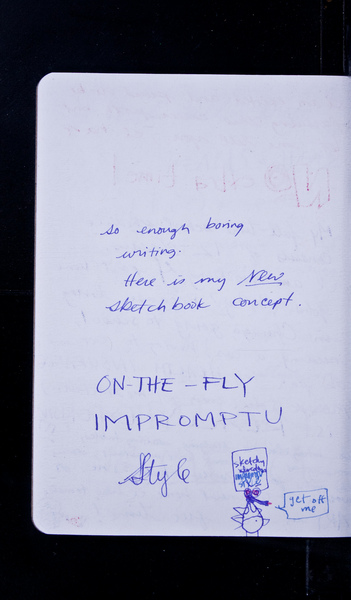 so enough boring
writing.
Here is my New
sketchbook concept.
ON-THE-FLY
IMPROMPTU
Style
sketchy
get off
me